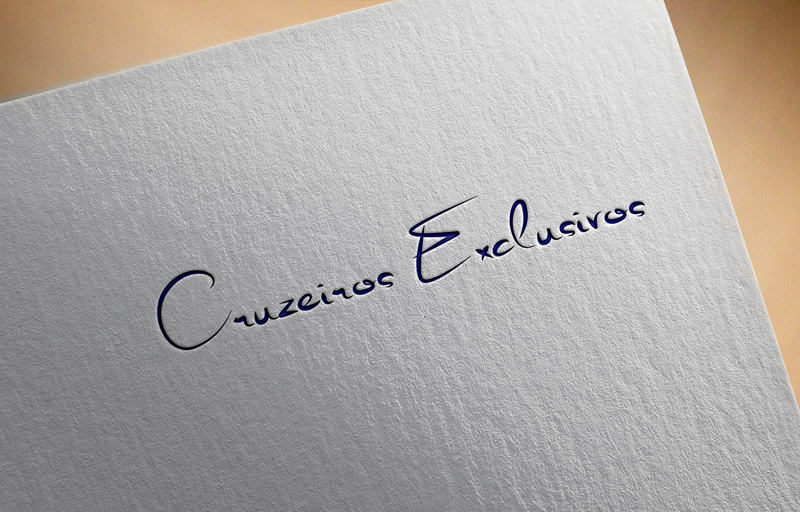 Cruzeiros Exclusivos